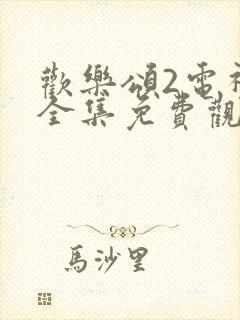 歡樂頌2電視
全集免費觀
馬沙里